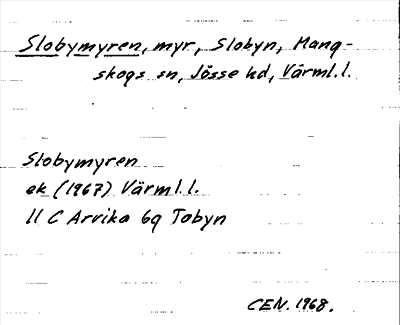 Slobymyren, myr, Slobyn, Mang-
skogs sn, Jösse hd, Värml. l.
Slobymyren
ek (1967) Värml. l.
11 C Arvika 6g Tobyn
CEN. 1968.